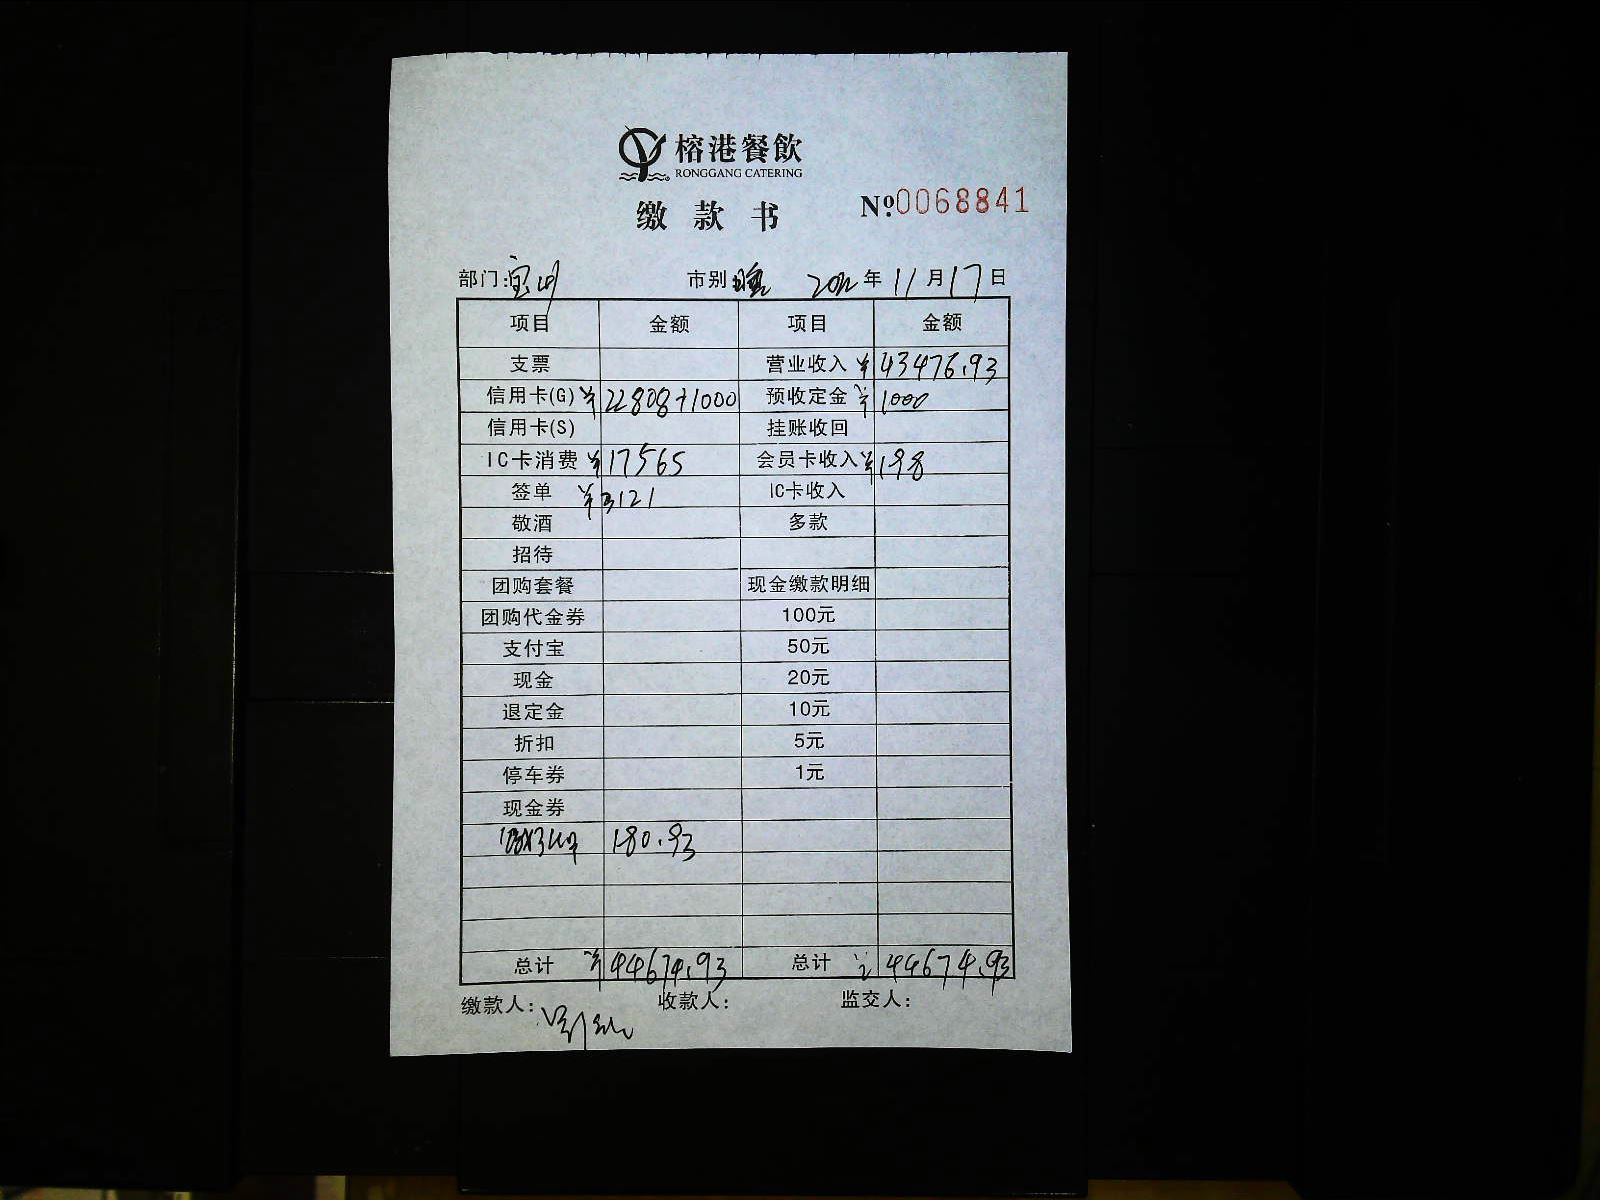 榕港餐飲
RONGGANG CATERING
缴款书
№0068841
部门: 市别 年 11月17日
项目 金额 项目 金额
支票 营业收入 ¥43476.93
信用卡(G) ¥22808+1000 预收定金 ¥1000
信用卡(S) 挂账收回
IC卡消费 ¥17565 会员卡收入 ¥198
签单 ¥3121 IC卡收入
敬酒 多款
招待
团购套餐 现金缴款明细
团购代金券 100元
支付宝 50元
现金 20元
退定金 10元
折扣 5元
停车券 1元
现金券
180.93
总计 ¥44674.93 总计 44674.93
缴款人: 收款人: 监交人: